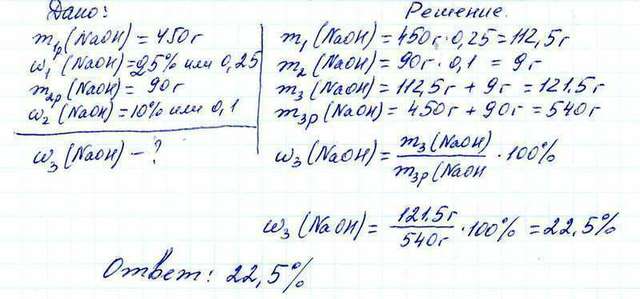 Дано:
m₁р (NaOH) = 450г
ω₁ (NaOH) = 25% или 0,25
m₂р (NaOH) = 90г
ω₂ (NaOH) = 10% или 0,1
ω₃ (NaOH) - ?
Решение.
m₁ (NaOH) = 450г · 0,25 = 112,5г
m₂ (NaOH) = 90г · 0,1 = 9г
m₃ (NaOH) = 112,5г + 9г = 121.5г
m₃р (NaOH) = 450г + 90г = 540г
ω₃ (NaOH) = m₃ (NaOH) / m₃р (NaOH · 100%
ω₃ (NaOH) = 121.5г / 540г · 100% = 22,5%
Ответ: 22,5%